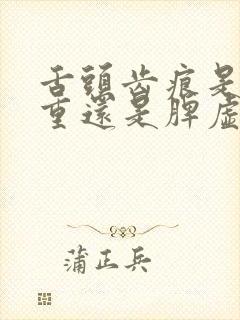 舌頭齿痕是
重還是脾虛
蒲正兵